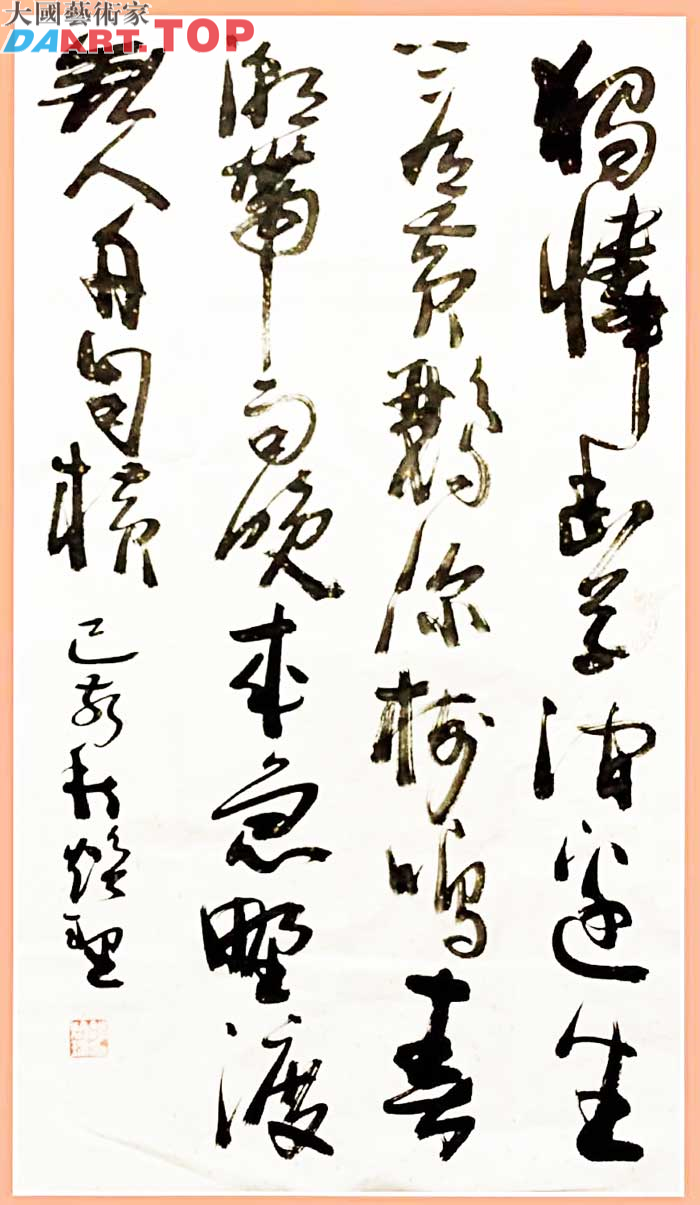 大國藝術家
DAART.TOP
獨憐幽草澗邊生
上有黄鸝深樹鳴春
潮帶雨晚来急野渡
無人舟自横
己亥秋